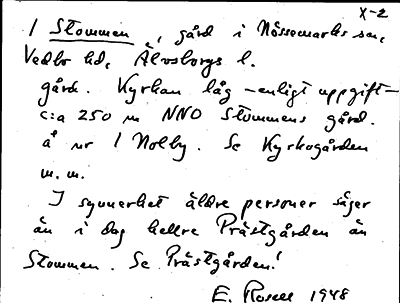 X-2
1 Stommen, gård i Nössemarks sn,
Vedbo hd, Älvsborgs l.
gård. Kyrkan låg – enligt uppgift –
c:a 250 m NNO Stommens gård.
å nr 1 Nolby. Se Kyrkogården
m. m.
I synnerhet äldre personer säger
än i dag hellre Prästgården än
Stommen. Se Prästgården!
E. Rosell 1948